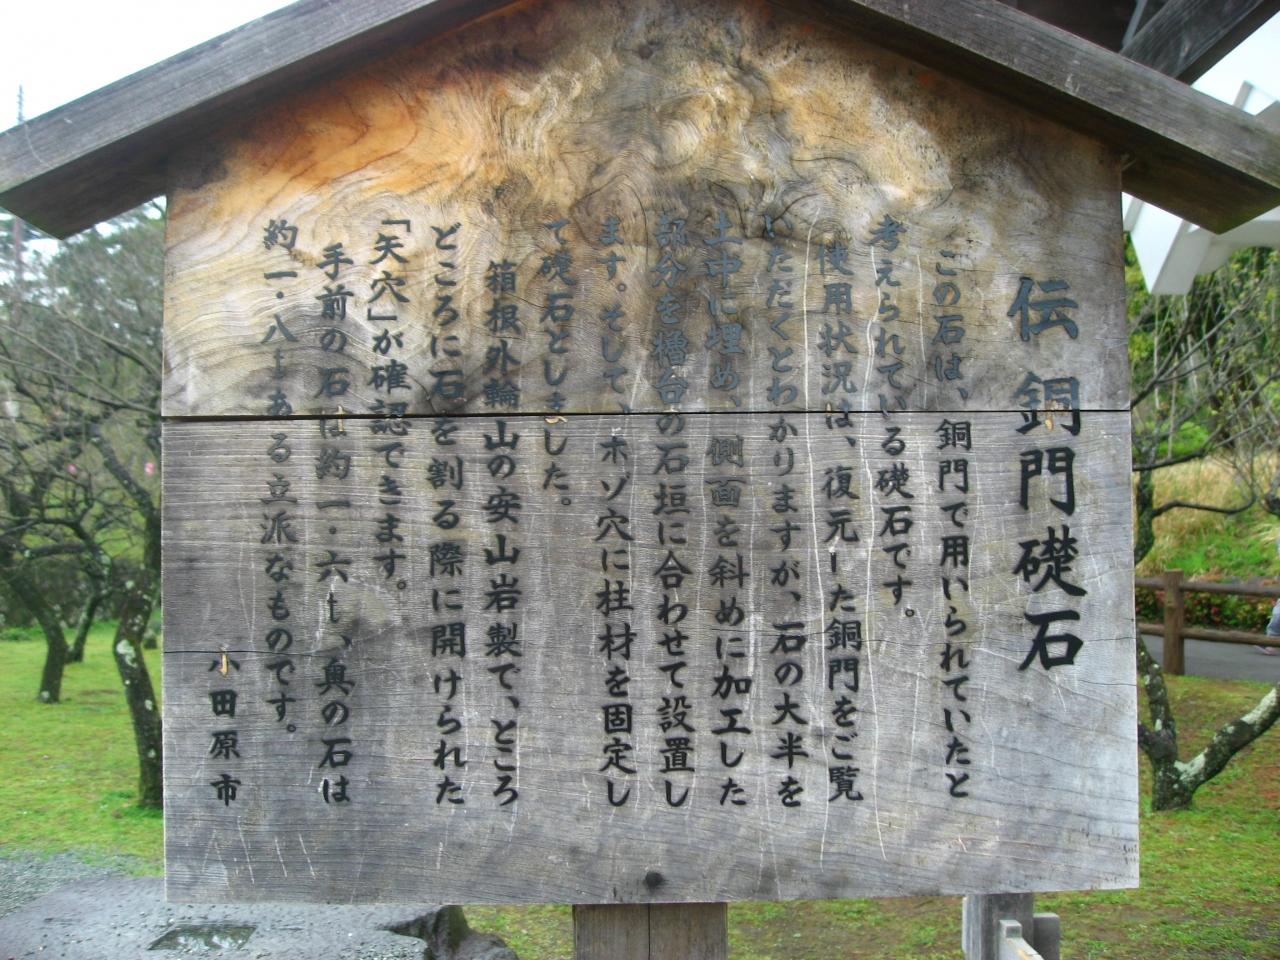 伝 銅門礎石
この石は、銅門で用いられていたと
考えられている礎石です。
使用状況は、復元した銅門をご覧
いただくとわかりますが、石の大半を
土中に埋め、側面を斜めに加工した
部分を櫓台の石垣に合わせて設置し
ます。そして、ホゾ穴に柱材を固定し
て礎石としました。
箱根外輪山の安山岩製で、ところ
どころに石を割る際に開けられた
「矢穴」が確認できます。
手前の石は約一・六t、奥の石は
約一・八tある立派なものです。
小田原市